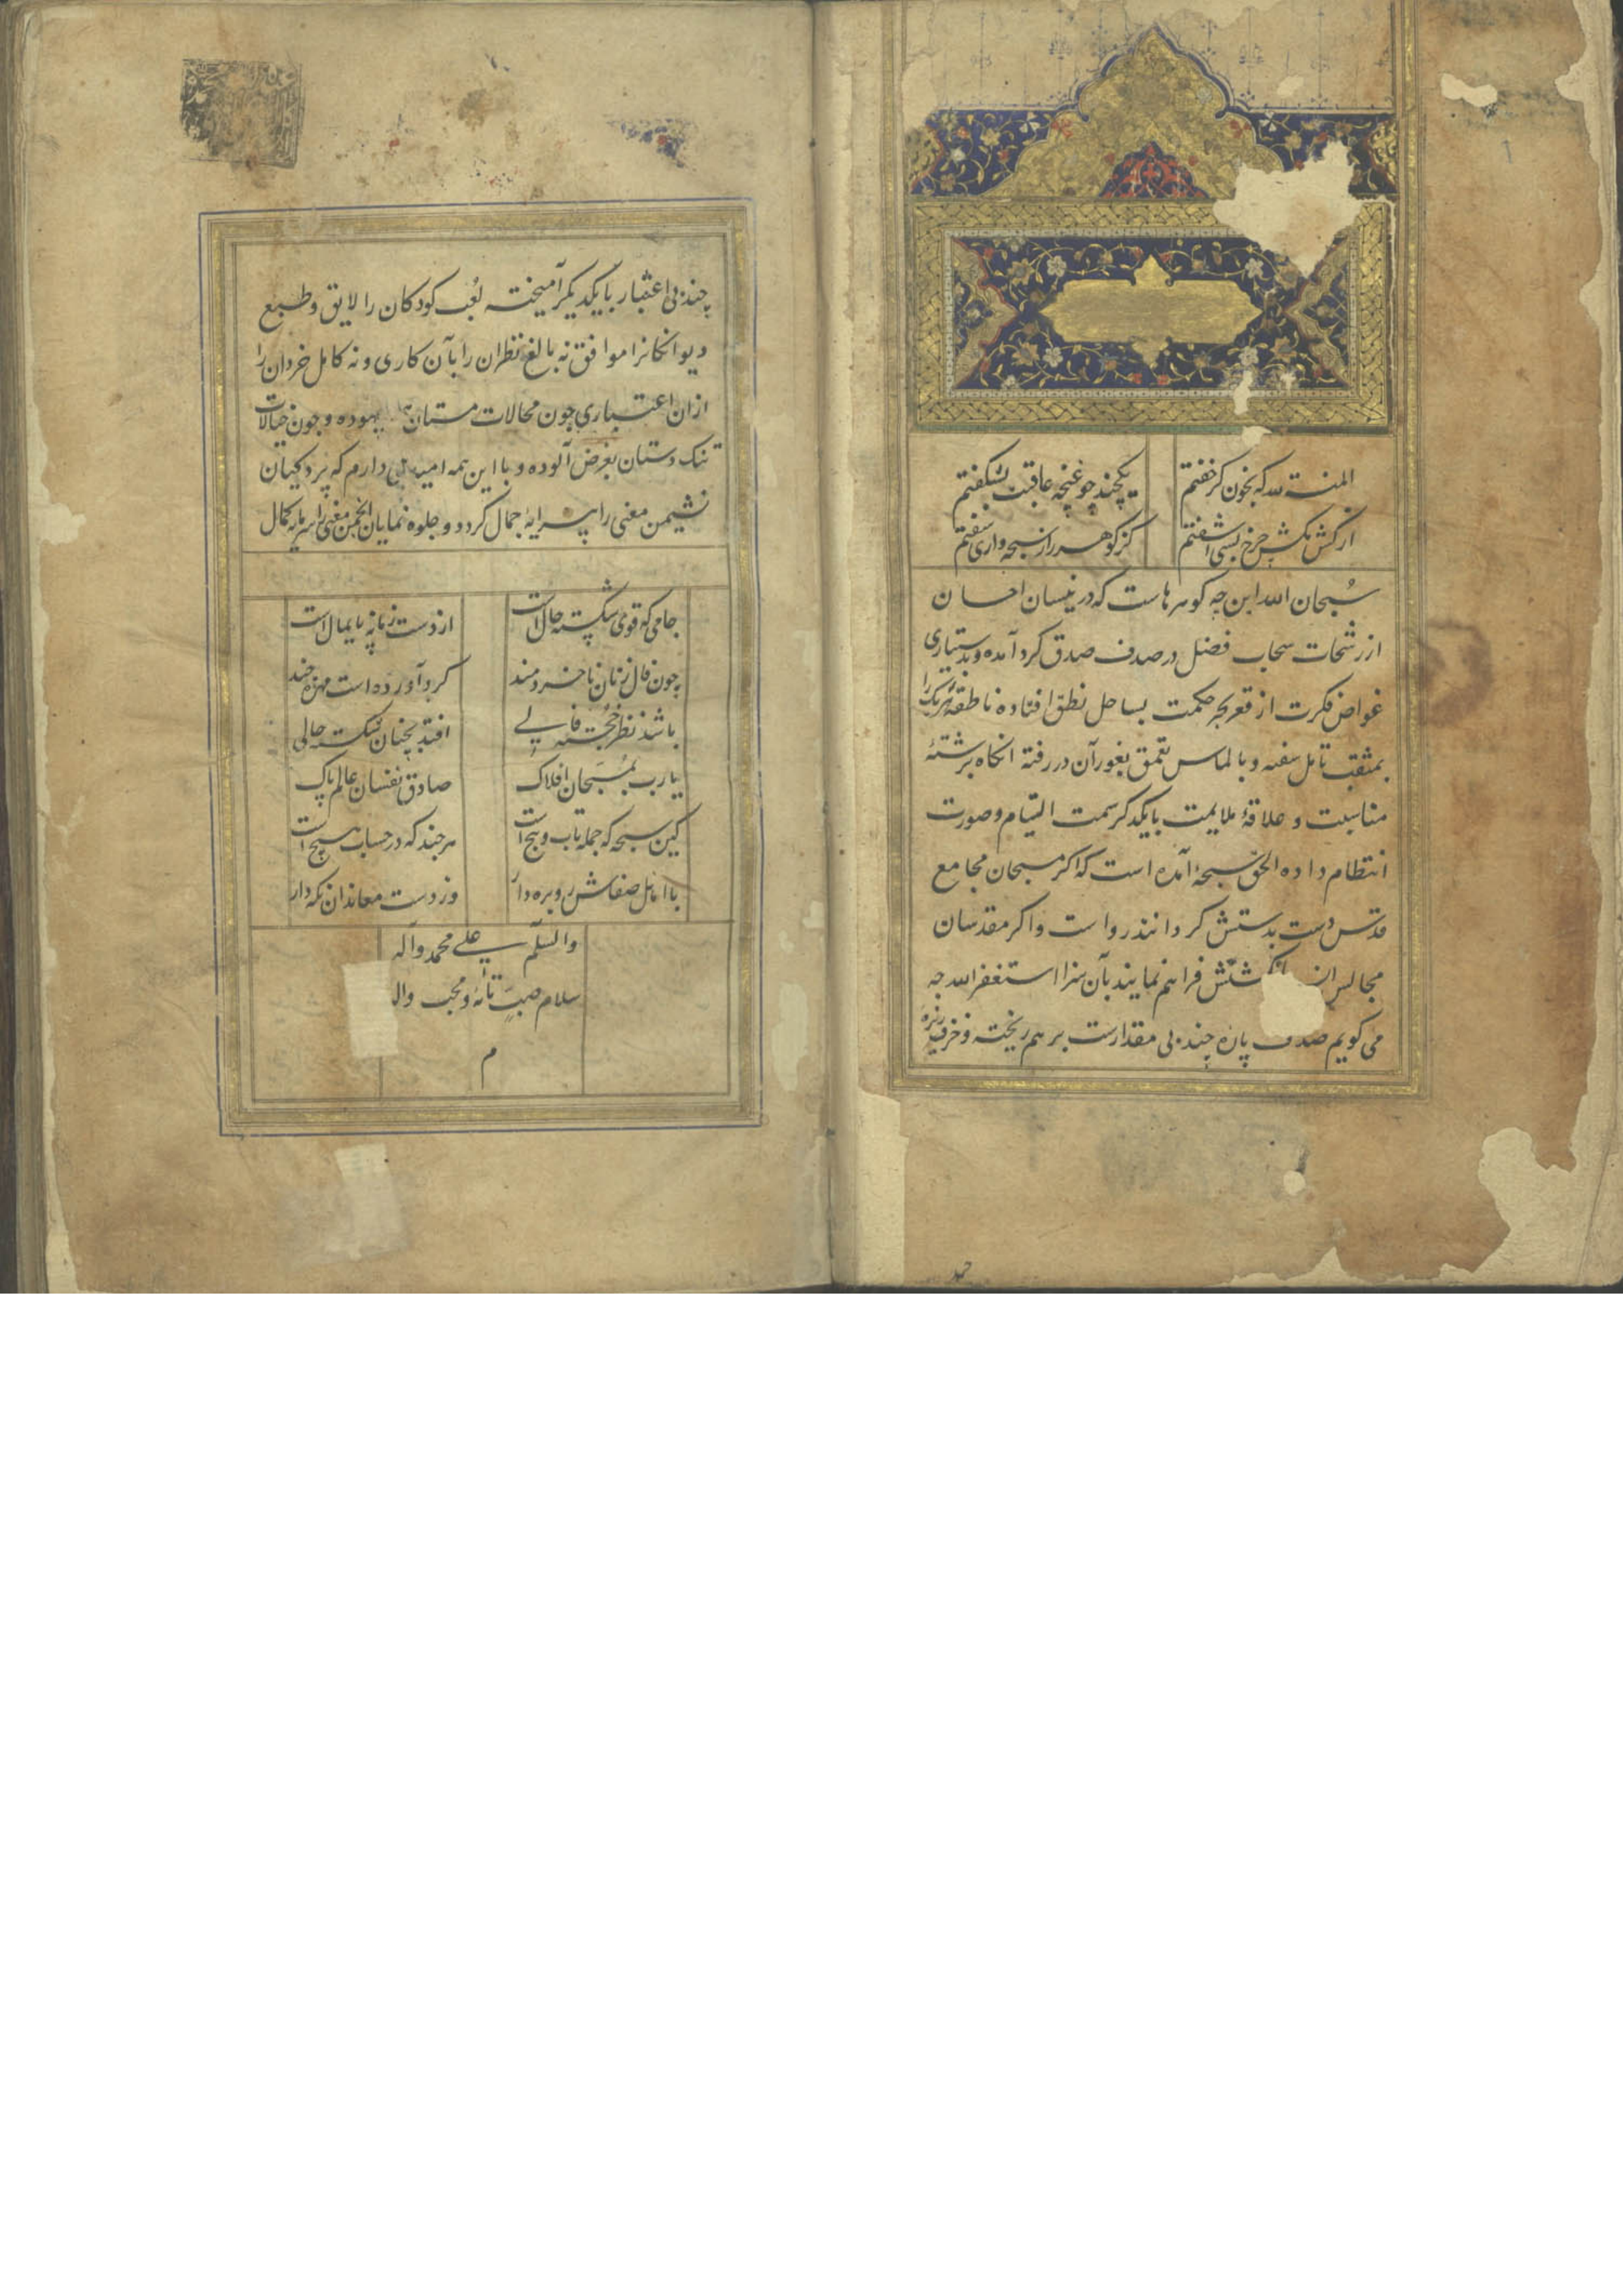 المنة لله که بخون گر خفتم
یکچند چو غنچه عاقبت بشکفتم
از کش مکش چرخ بسی آشفتم
کز گوهر راز سبحه واری سفتم
سُبحان الله این چه گوهرهاست که در نیسان احسان
از رشحات سحاب فضل در صدف صدق گرد آمده و بدستیاری
غواص فکرت از قعر بحر حکمت بساحل نطق افتاده ناطقه هر یک را
بمثقب تامل سفته و بالماس تعمق بغور آن در رفته آنگاه برشتهٔ
مناسبت و علاقهٔ ملایمت بایکدگر سمت التیام و صورت
انتظام داده الحق سبحهٔ آمده است که اگر مسبحان مجامع
قدس دست بدستش گردانند رواست و اگر مقدسان
مجالس انس شتش فراهم نمایند بآن سزا استغفر الله چه
می گویم صدف پارهٔ چند بی مقدارست بر هم ریخته و خزف ریزهٔ
چند بی اعتبار با یکدیگر آمیخته لعب کودکان را لایق و طبع
دیوانگانرا موافق نه بالغ نظران را بآن کاری و نه کامل خردان را
ازان اعتباری چون محالات مستان بیهوده و چون خیالات
تنک دستان بغرض آلوده و با این همه امید می دارم که پردگیان
نشیمن معنی را پیرایهٔ جمال گردد و جلوه نمایان انجمن معنی را سرمایه کمال
جامی که قوی شکسته حال است
از دست زمانه پایمال است
چون فال زنان ناخردمند
گرد آورده است مهره چند
باشد نظر خجسته فالی
افتد بچنان شکسته حالی
یا رب بمُسَبحان افلاک
صادق نفسان عالم پاک
کین سبحه که جمله تاب و پیچ است
هر چند که در حساب هیچ است
با اهل صفاش روبره دار
وز دست معاندان نگه دار
والسلم علی محمد وآله
سلام صب تائه و محب واله
م